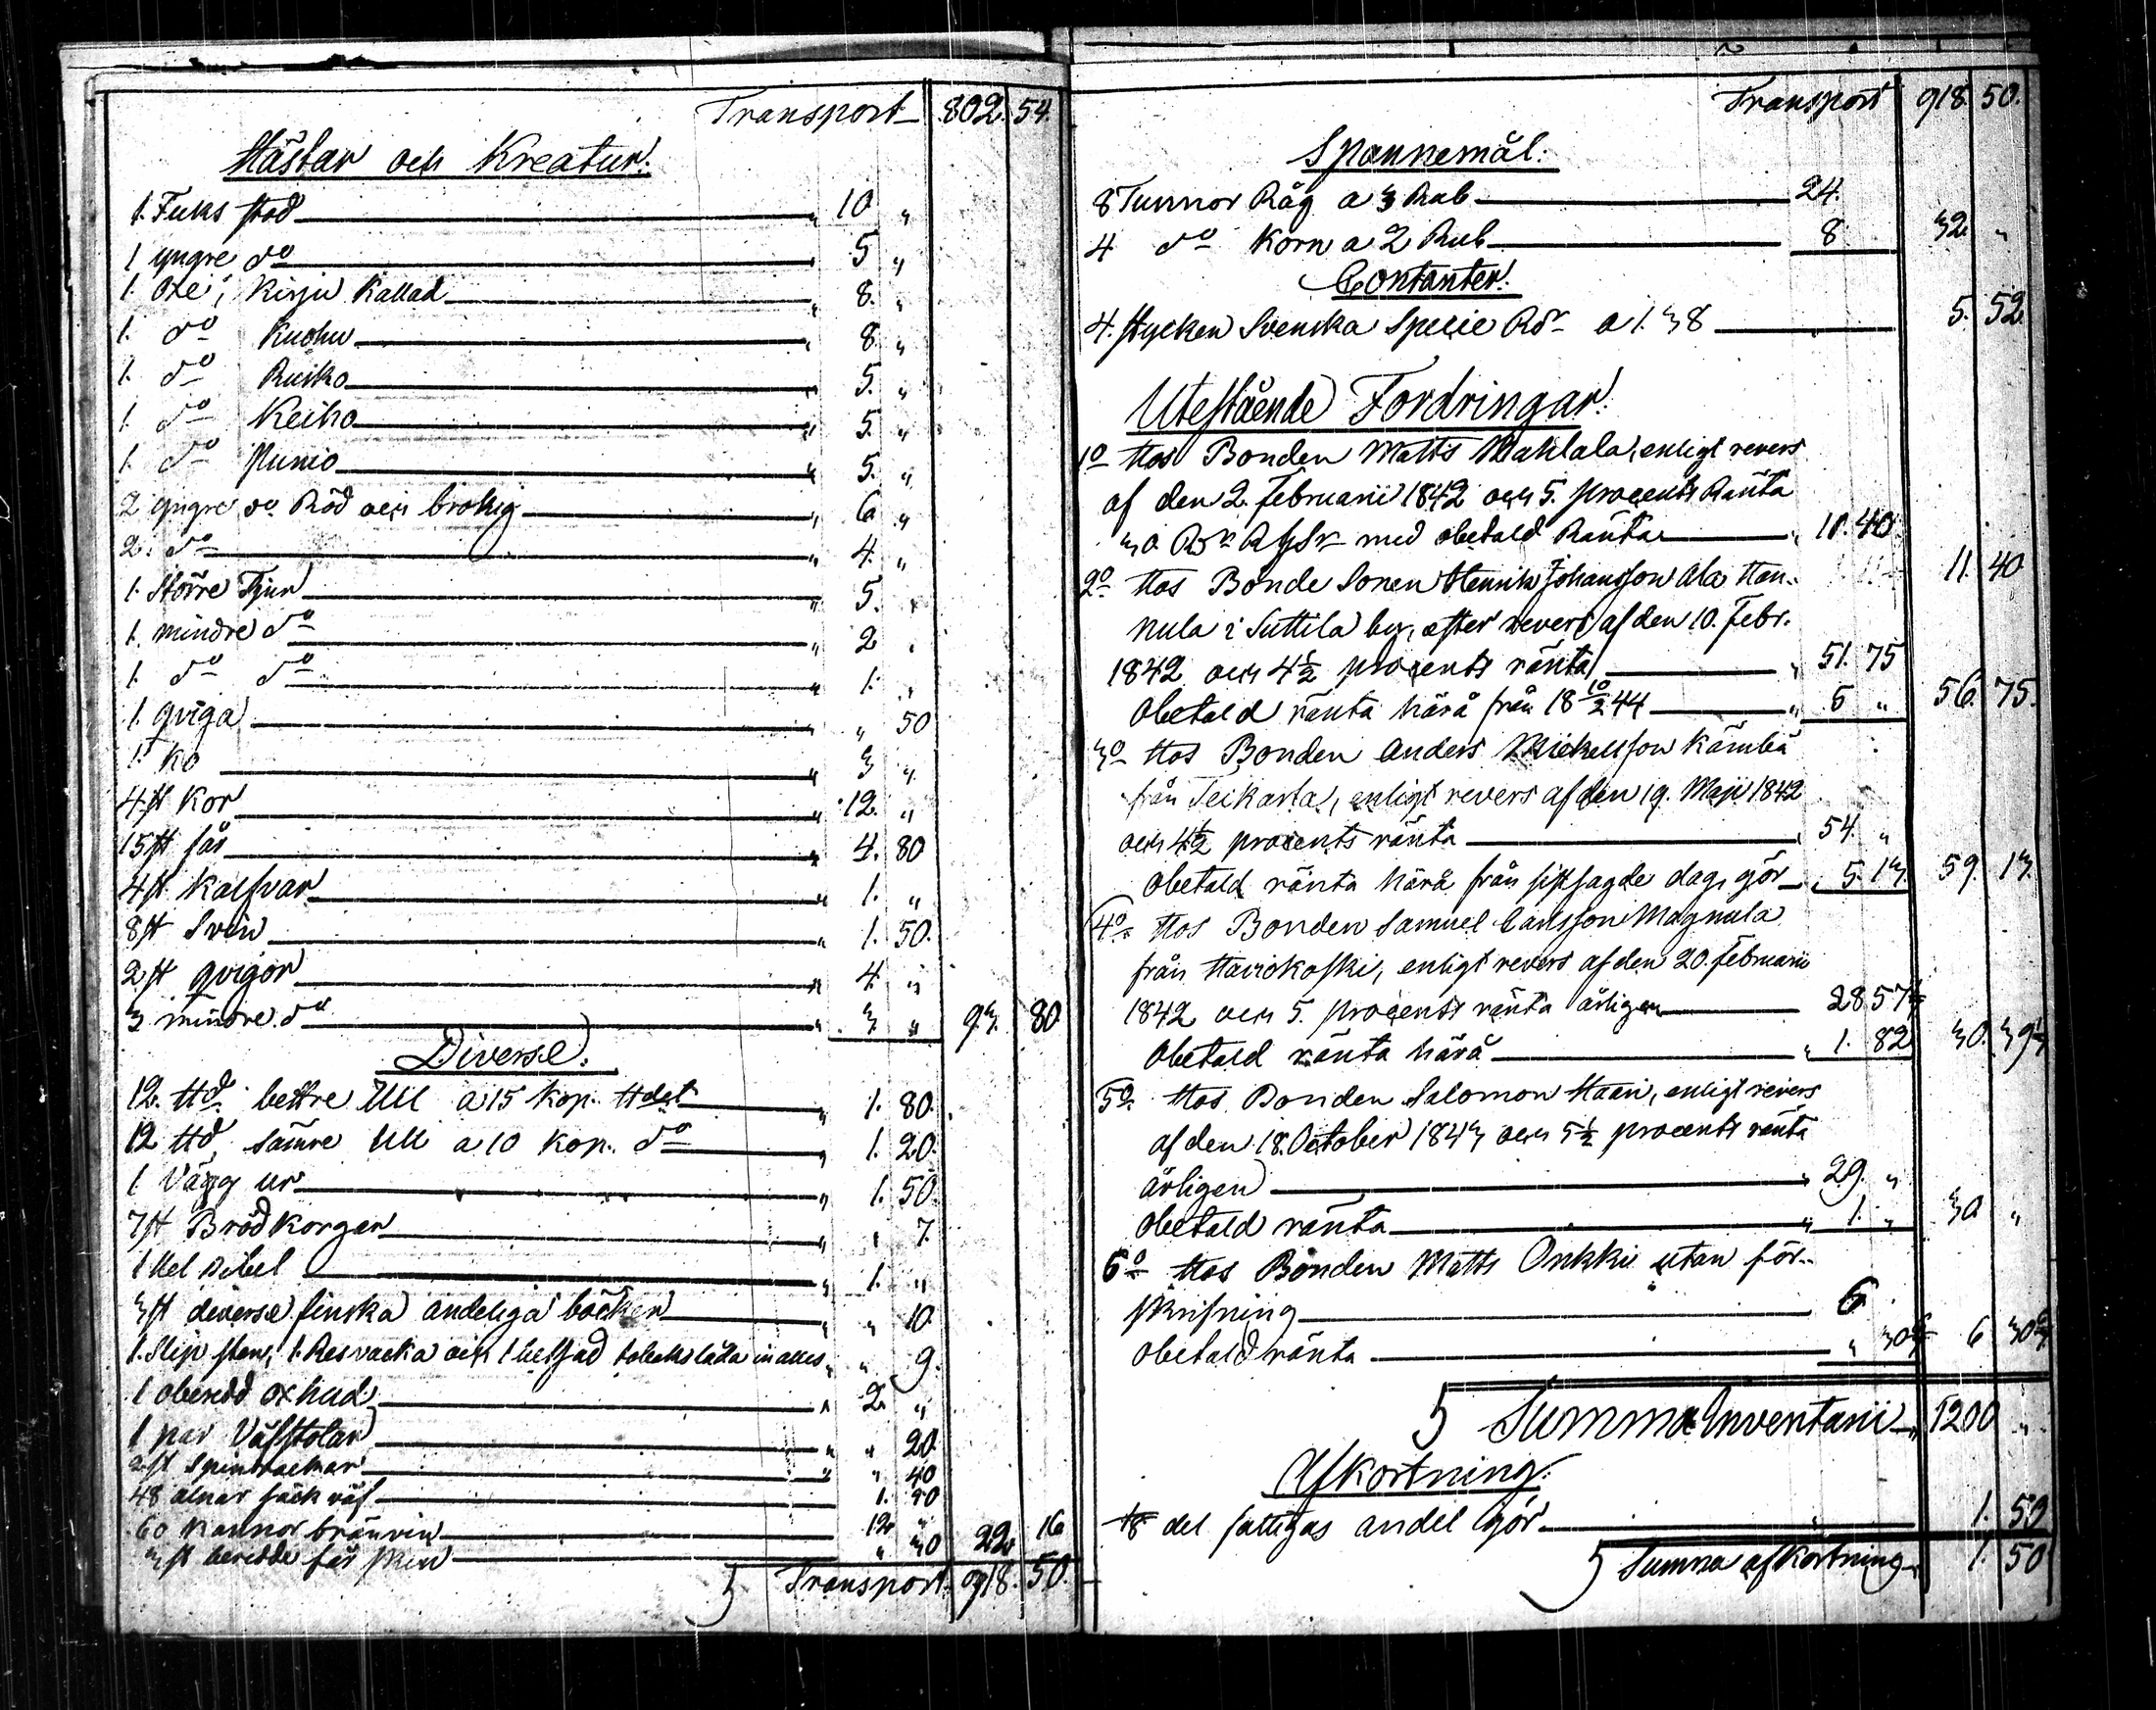 Transport 802. 54.
Hästar och Kreatur.
1. Fuks stod " 10 "
1 yngre do " 5 "
1. Oxe, Kirju Kallad " 8. "
1. do Kuohu " 8. "
1. do Ruisko " 5. "
1. do Keiho " 5. "
1. do Punio " 5. "
2 yngre do Röd och brokig " 6 "
2. do " 4. "
1. Större Tjur " 5. "
1. mindre do " 2 "
1. do do " 1. "
1. qviga " " 50
1. Ko " 3 "
4. st Kor " 12. "
15 st får " 4. 80
4 st. Kalfvar " 1. "
8 st Svin " 1. 50.
2 st qvigor " 4. "
3 mindre do " 3 " 93. 80
Diverse.
12. ttd. bettre Ull a 15 kop. ttdet " 1. 80.
12 ttd. sämre Ull a 10 kop. do " 1. 20.
1 Vägg ur " 1. 50.
7 st Brödkorgar " " 7.
1 Hel Bibel " 1. "
3 st diverse finska andeliga böcker " " 10.
1. Slip sten, 1. Resvaska och 1 beslad tobaks låda in alles " " 9.
1 oberedd oxhud " 2 "
1 par Väfstolar " " 20.
2 st Spinrackar " " 40
48 alnar säck väf 1. 90
60 Kannor bränvin 12 "
3 st beredde får skin " 30 22 16
S Transport. 918. 50.
Transport 918. 50.
Spannemål.
8 Tunnor Råg a 3 Rub 24.
4 do Korn a 2 Rub 8 32 "
Contanter.
4. stycken Svenska Specie Rdr a 1. 38 5. 52
Utestående Fordringar.
1o Hos Bonden Matts Wahlala, enligt revers
af den 2. Februarii 1842 och 5. procents Ränta
30 Rdr Rgs med obetald Ränta " 11. 40. 11. 40
2o Hos Bonde Sonen Henrik Johansson Ala Han-
nula i Suttila by, efter revers af den 10. Febr.
1842 och 4½ procents ränta " 51. 75
Obetald ränta härå från 18 10/2 44 " 5 " 56. 75.
3o Hos Bonden Anders Mickelsson Kämbä
från Teikarla, enligt revers af den 19. Maji 1842
och 4½ procents ränta " 54. "
Obetald ränta härå från sistsagde dag, gör " 5. 13. 59. 13.
4o Hos Bonden Samuel Carlsson Magnula
från Haviokoski, enligt revers af den 20. Februarii
1842 och 5. procents ränta årligen 28 57
Obetald ränta härå " 1. 82 30. 39
5o Hos Bonden Salomon Haari, enligt revers
af den 18. October 1843 och 5½ procents ränta
årligen " 29. "
Obetald ränta " 1. " 30 "
6o Hos Bonden Matts Onkki utan för-
skrifning 6
Obetald ränta " 30 6 30
S Summa Inventarii " 1200 "
Afkortning.
⅛ del fattigas andel Gör 1. 50
S Summa afkortning " 1. 50